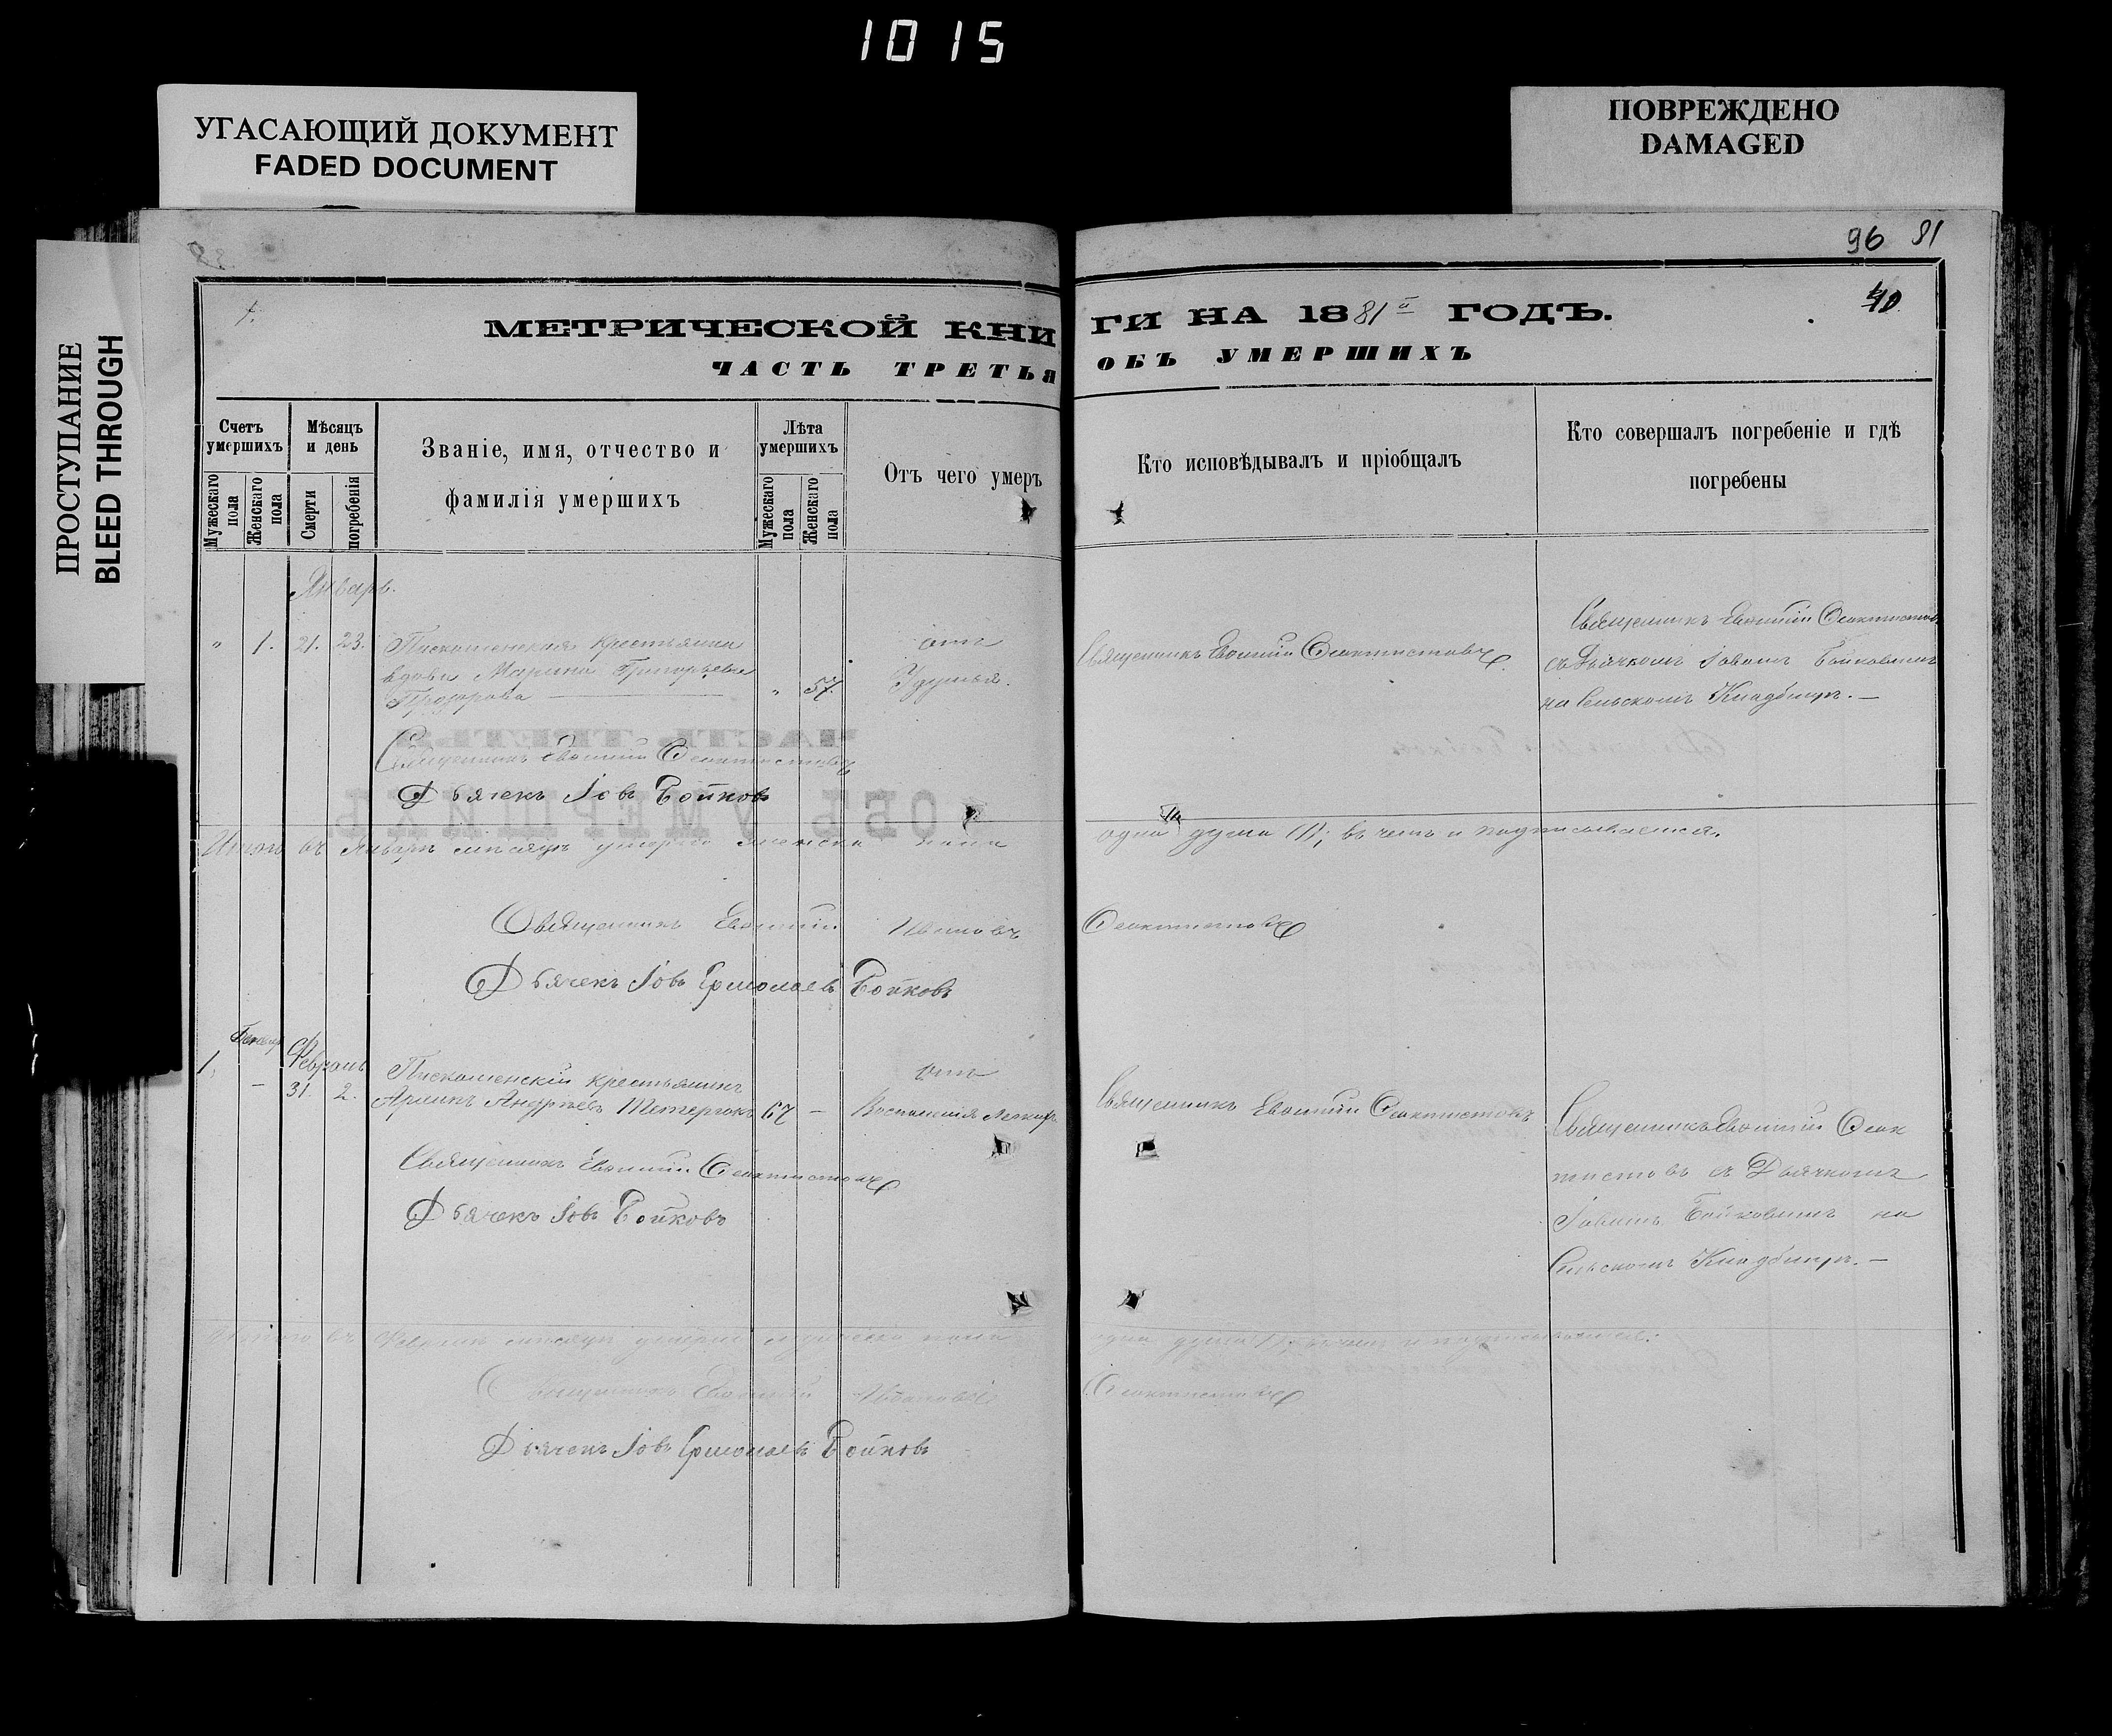 1015
УГАСАЮЩИЙ ДОКУМЕНТ
FADED DOCUMENT
ПОВРЕЖДЕНО
DAMAGED
ПРОСТУПАНИЕ
BLEED THROUGH
96 81
40
1.
МЕТРИЧЕСКОЙ КНИГИ НА 1881й ГОДЪ.
ЧАСТЬ ТРЕТЬЯ ОБЪ УМЕРШИХЪ
Счетъ умершихъ
Мужескаго пола
Женскаго пола
Мѣсяцъ и день
Смерти
погребенія
Званіе, имя, отчество и
фамилія умершихъ
Лѣта умершихъ
Мужескаго пола
Женскаго пола
Отъ чего умеръ
Кто исповѣдывалъ и пріобщалъ
Кто совершалъ погребеніе и гдѣ
погребены
Январь.
" 1. 21. 23. крестьянка
вдова Марина Григорьева
" 57.
отъ
Удушья.
Священникъ Евфимій Феоктистовъ
Священникъ Евфимій Феоктистовъ
съ Дьячкомъ Іовомъ Бойковымъ
на Сельскомъ Кладбищѣ. —
Священникъ Евфимій Феоктистовъ
Дьячекъ Іовъ Бойковъ
Итого въ Январѣ мѣсяцѣ умерло женска пола одна душа (1); въ чемъ и подписываемся.
Священникъ Евфимій Ивановъ Феоктистовъ
Дьячекъ Іовъ Ермолаевъ Бойковъ
Февраль
1. — 31. 2. крестьянинъ
Андреевъ 67 —
отъ
Воспаленія Легкихъ
Священникъ Евфимій Феоктистовъ
Священникъ Евфимій Феок
тистовъ съ Дьячкомъ
Іовомъ Бойковымъ на
Сельскомъ Кладбищѣ. —
Священникъ Евфимій Феоктистовъ
Дьячекъ Іовъ Бойковъ
Итого въ Февралѣ мѣсяцѣ умерло мужеска пола одна душа (1); въ чемъ и подписываемся.
Священникъ Евфимій Ивановъ Феоктистовъ
Дьячекъ Іовъ Ермолаевъ Бойковъ